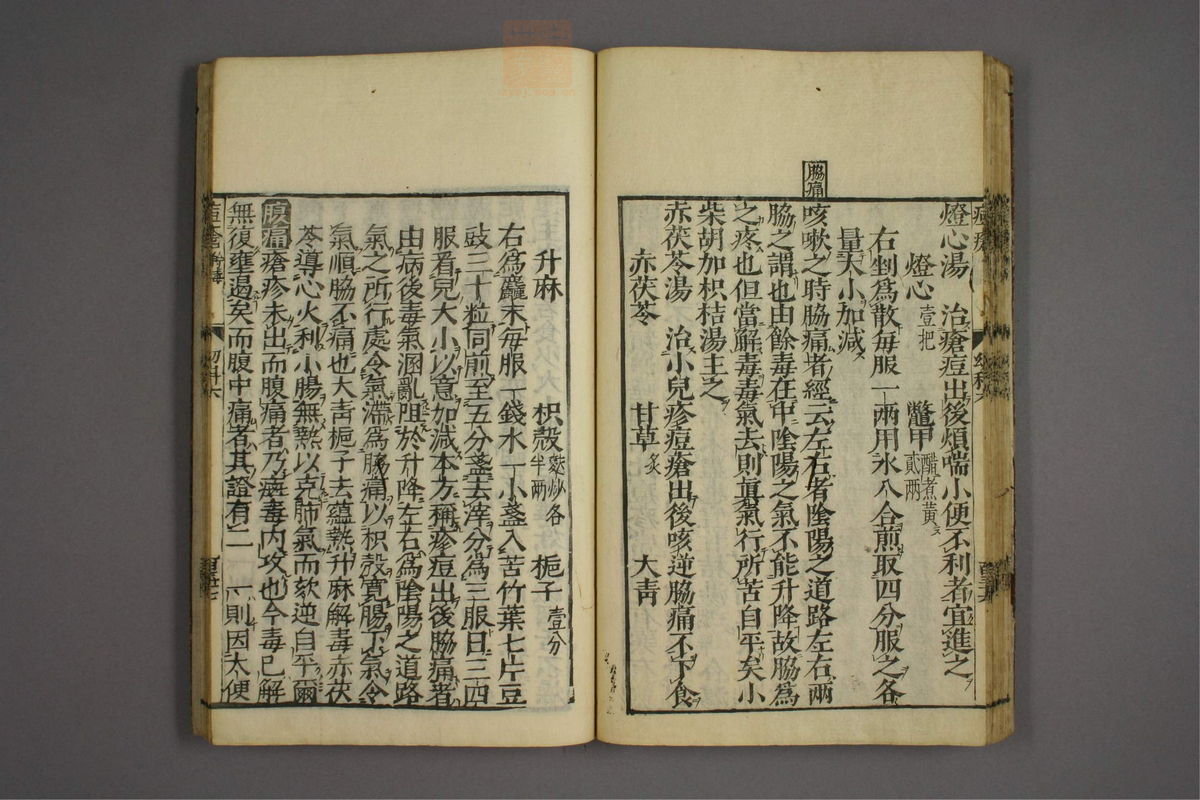 脇痛
燈心湯 治瘡痘出後煩喘小便不利者宜進之
燈心壹把 鼈甲醋煮黄貳兩
右剉爲散每服一兩用水八合煎取四分服之各
量大小加減
咳嗽之時脇痛者經云左右者陰陽之道路左右兩
脇之謂也由餘毒在中陰陽之氣不能升降故脇爲
之疼也但當解毒毒氣去則眞氣行所苦自平矣小
柴胡加枳桔湯主之
赤茯苓湯 治小兒疹痘瘡出後咳逆脇痛不下食
赤茯苓 甘草炙 大靑
升麻 枳殼麩炒各半兩 梔子壹分
右爲麤末每服一錢水一小盞入苦竹葉七片豆
豉三十粒同煎至五分盞去滓分爲三服日三四
服看兒大小以意加減本方稱疹痘出後脇痛者
由病後毒氣溷亂阻於升降左右爲陰陽之道路
氣之所行處令氣滯爲脇痛以枳殼寬腸下氣令
氣順脇不痛也大靑梔子去蘊熱升麻解毒赤茯
苓導心火利小腸無熱以克肺氣而欬逆自平爾
腹痛瘡疹未出而腹痛者乃病毒内攻也今毒已解
無復壅遏矣而腹中痛者其證有二一則因大便